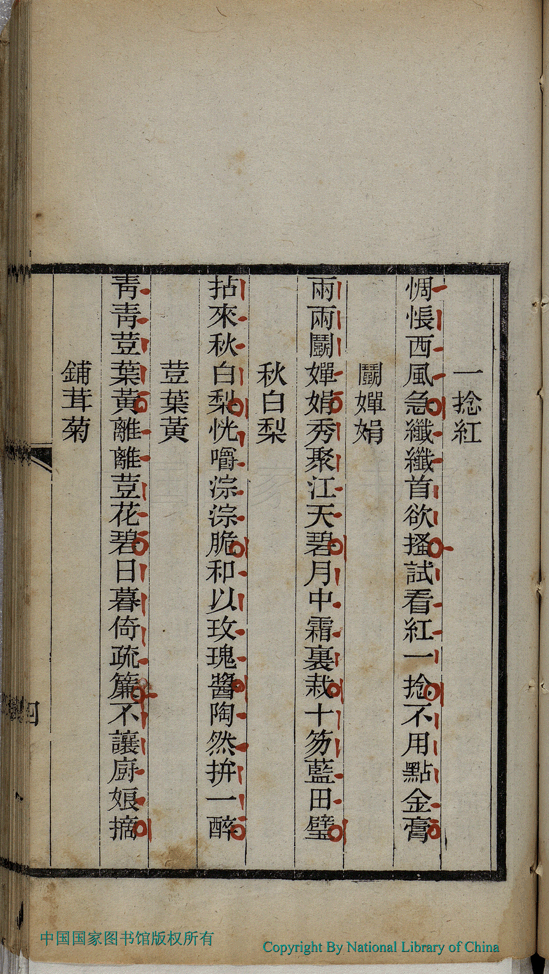 一捻紅
惆悵西風急纖纖首欲搔試看紅一捻不用點金膏
鬭嬋娟
兩兩鬭嬋娟秀聚江天碧月中霜裏栽十笏藍田璧
秋白梨
拈來秋白梨恍嚼淙淙脆和以玫瑰醬陶然拚一醉
荳葉黃
靑靑荳葉黃離離荳花碧日暮倚疏簾不讓厨娘摘
鋪茸菊
四
中国国家图书馆版权所有
Copyright By National Library of China